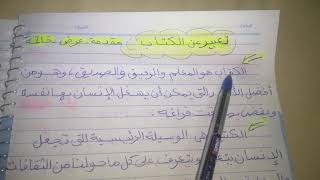 تعبير عن الكتاب مقدمة عرض خاتمة
الكتاب هو المعلم والرفيق والصديق، وهو من
أفضل التي يمكن أن يشغل الإنسان بها نفسه
ويقضي بها وقت فراغه.
الكتاب هي الوسيلة الرئيسية التي تجعل
الإنسان ويتعرف على كل ما حولنا من الثقافات